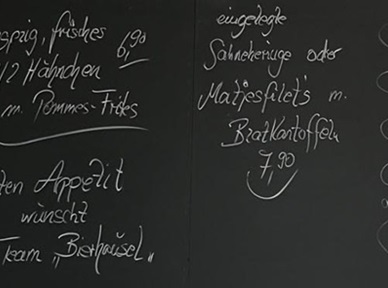 frisches 6,90
1/2 Hähnchen
m. Pommes-Frites
Appetit
wünscht
Team „Bierhäusel“
eingelegte
Sahneheringe oder
Matjesfilet's m.
Bratkartoffeln
7,90